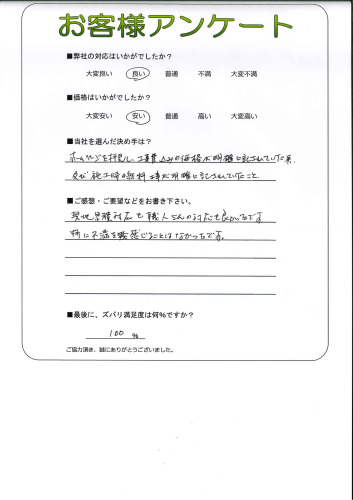 お客様アンケート
■弊社の対応はいかがでしたか?
大変良い 良い 普通 不満 大変不満
■価格はいかがでしたか?
大変安い 安い 普通 高い 大変高い
■当社を選んだ決め手は?
ホームページを拝見し、工事費込みの価格が明確に記されていた点、
及び施工時の無料工事が明確に記されていたこと。
■ご感想・ご要望などをお書き下さい。
現地見積対応も職人さんの対応も良かったです
特に不満を感じることはなかったです。
■最後に、ズバリ満足度は何%ですか?
100 %
ご協力頂き、誠にありがとうございました。